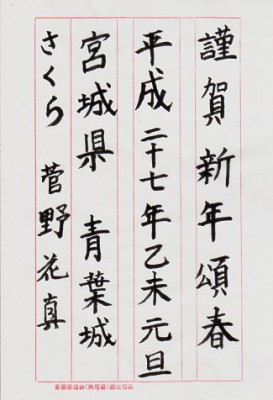 謹賀新年頌春
平成二十七年乙未元旦
宮城県 青葉城
さくら 菅野花真